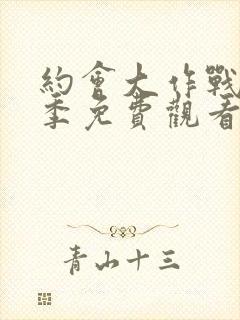 約會大作戰
季免費觀看
青山十三